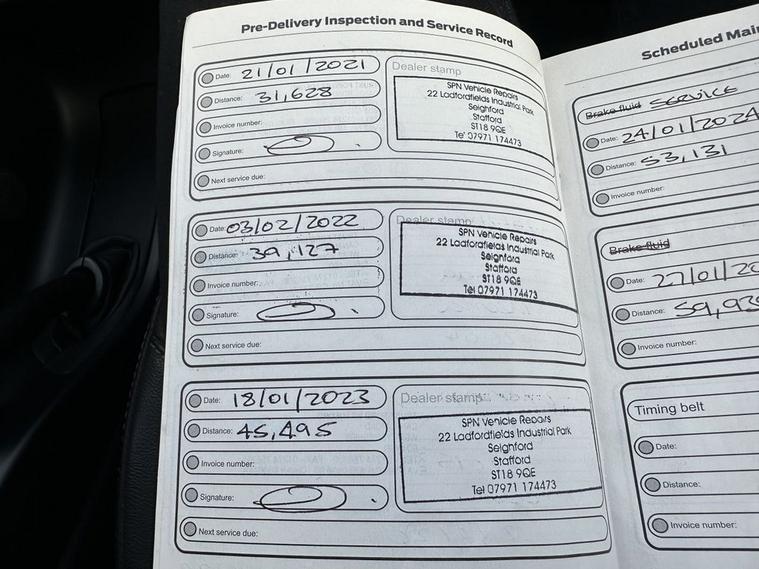 Pre-Delivery Inspection and Service Record
Date: 21/01/2021
Distance: 31,628
Invoice number:
Signature:
Next service due:
Dealer stamp
SPN Vehicle Repairs
22 Ladfordfields Industrial Park
Seighford
Stafford
ST18 9QE
Tel 07971 174473
Date: 03/02/2022
Distance: 39,127
Invoice number:
Signature:
Next service due:
Dealer stamp
SPN Vehicle Repairs
22 Ladfordfields Industrial Park
Seighford
Stafford
ST18 9QE
Tel 07971 174473
Date: 18/01/2023
Distance: 45,495
Invoice number:
Signature:
Next service due:
Dealer stamp
SPN Vehicle Repairs
22 Ladfordfields Industrial Park
Seighford
Stafford
ST18 9QE
Tel 07971 174473
Scheduled Mai
Brake fluid SERVICE
Date: 24/01/2024
Distance: 53,131
Invoice number:
Brake fluid
Date: 27/01/20
Distance: 59,93
Invoice number:
Timing belt
Date:
Distance:
Invoice number: